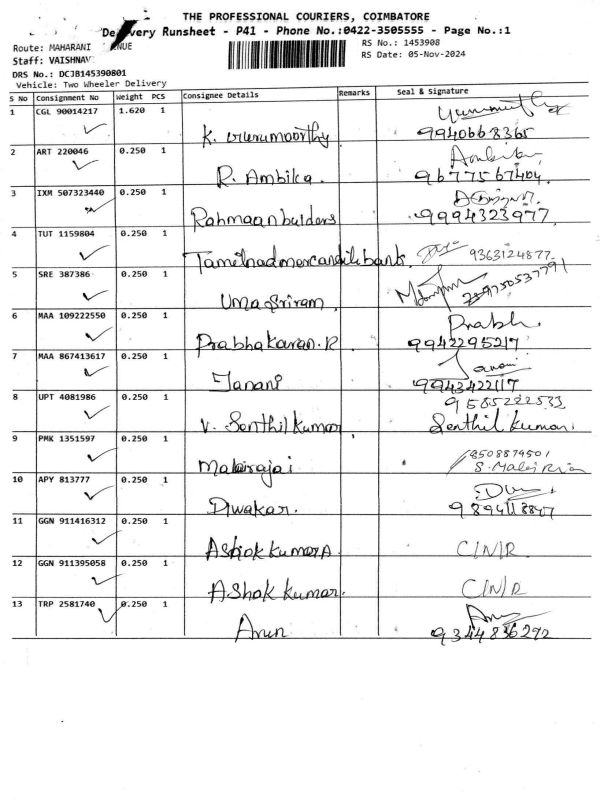 THE PROFESSIONAL COURIERS, COIMBATORE
Delivery Runsheet - P41 - Phone No.:0422-3505555 - Page No.:1
Route: MAHARANI AVENUE
RS No.: 1453908
Staff: VAISHNAV
RS Date: 05-Nov-2024
DRS No.: DCJB145390801
Vehicle: Two Wheeler Delivery
S No Consignment No Weight PCS Consignee Details Remarks Seal & Signature
1 CGL 90014217 1.620 1
9940668365
2 ART 220046 0.250 1 Ambika
R. Ambika. 9677567404
3 IXM 507323440 0.250 1
Rahmaanbuilders 9994323977
4 TUT 1159804 0.250 1
Tamilnadmercandilebank. 9363124877
5 SRE 387386 0.250 1
Uma Sriram 9750537791
6 MAA 109222550 0.250 1 Prabh
Prabhakaran.R 9942295217
7 MAA 867413617 0.250 1 Janani
Janani 9943422117
8 UPT 4081986 0.250 1 9585222533
V. Senthilkumar Senthil kumar
9 PMK 1351597 0.250 1 9508879501
Malairajai
10 APY 813777 0.250 1
Diwakar. 9894118847
11 GGN 911416312 0.250 1
Ashok kumar A C/N/R
12 GGN 911395058 0.250 1
AShok kumar. C/N/R
13 TRP 2581740 0.250 1
Arun 9344836292